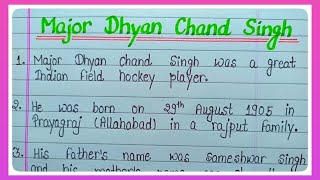 Major Dhyan Chand Singh
1. Major Dhyan chand Singh was a great
Indian field hockey player.
2. He was born on 29th August 1905 in
Prayagraj (Allahabad) in a rajput family.
3. His father's name was Sameshwar Singh
and his mother's name was